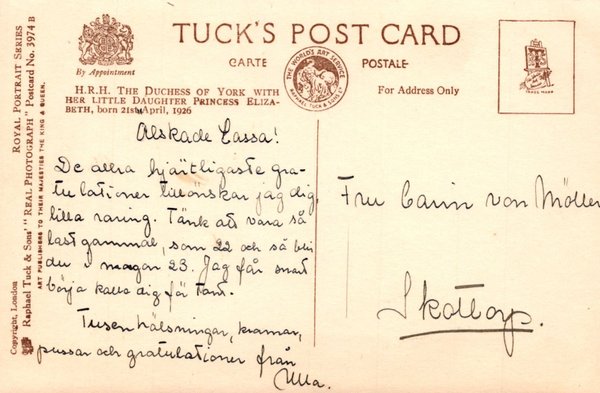 TUCK'S POST CARD
By Appointment
CARTE POSTALE
THE WORLD'S ART SERVICE
RAPHAEL TUCK & SONS LTD
TRADE MARK
H.R.H. THE DUCHESS OF YORK WITH
HER LITTLE DAUGHTER PRINCESS ELIZA-
BETH, born 21st April, 1926
For Address Only
Älskade Cassa!
De allra hjärtligaste gra-
tulationer tillönskar jag dig,
lilla raring. Tänk att vara så
lastgammal, som 22 och så blir
du i morgon 23. Jag får snart
börja kalla dig för Tant.
Tusen hälsningar, kramar,
pussar och gratulationer från
Ulla.
Fru Carin von Möller
Skottorp.
Copyright, London
Raphael Tuck & Sons' "REAL PHOTOGRAPH" Postcard No. 3974 B
ROYAL PORTRAIT SERIES
ART PUBLISHERS TO THEIR MAJESTIES THE KING & QUEEN.